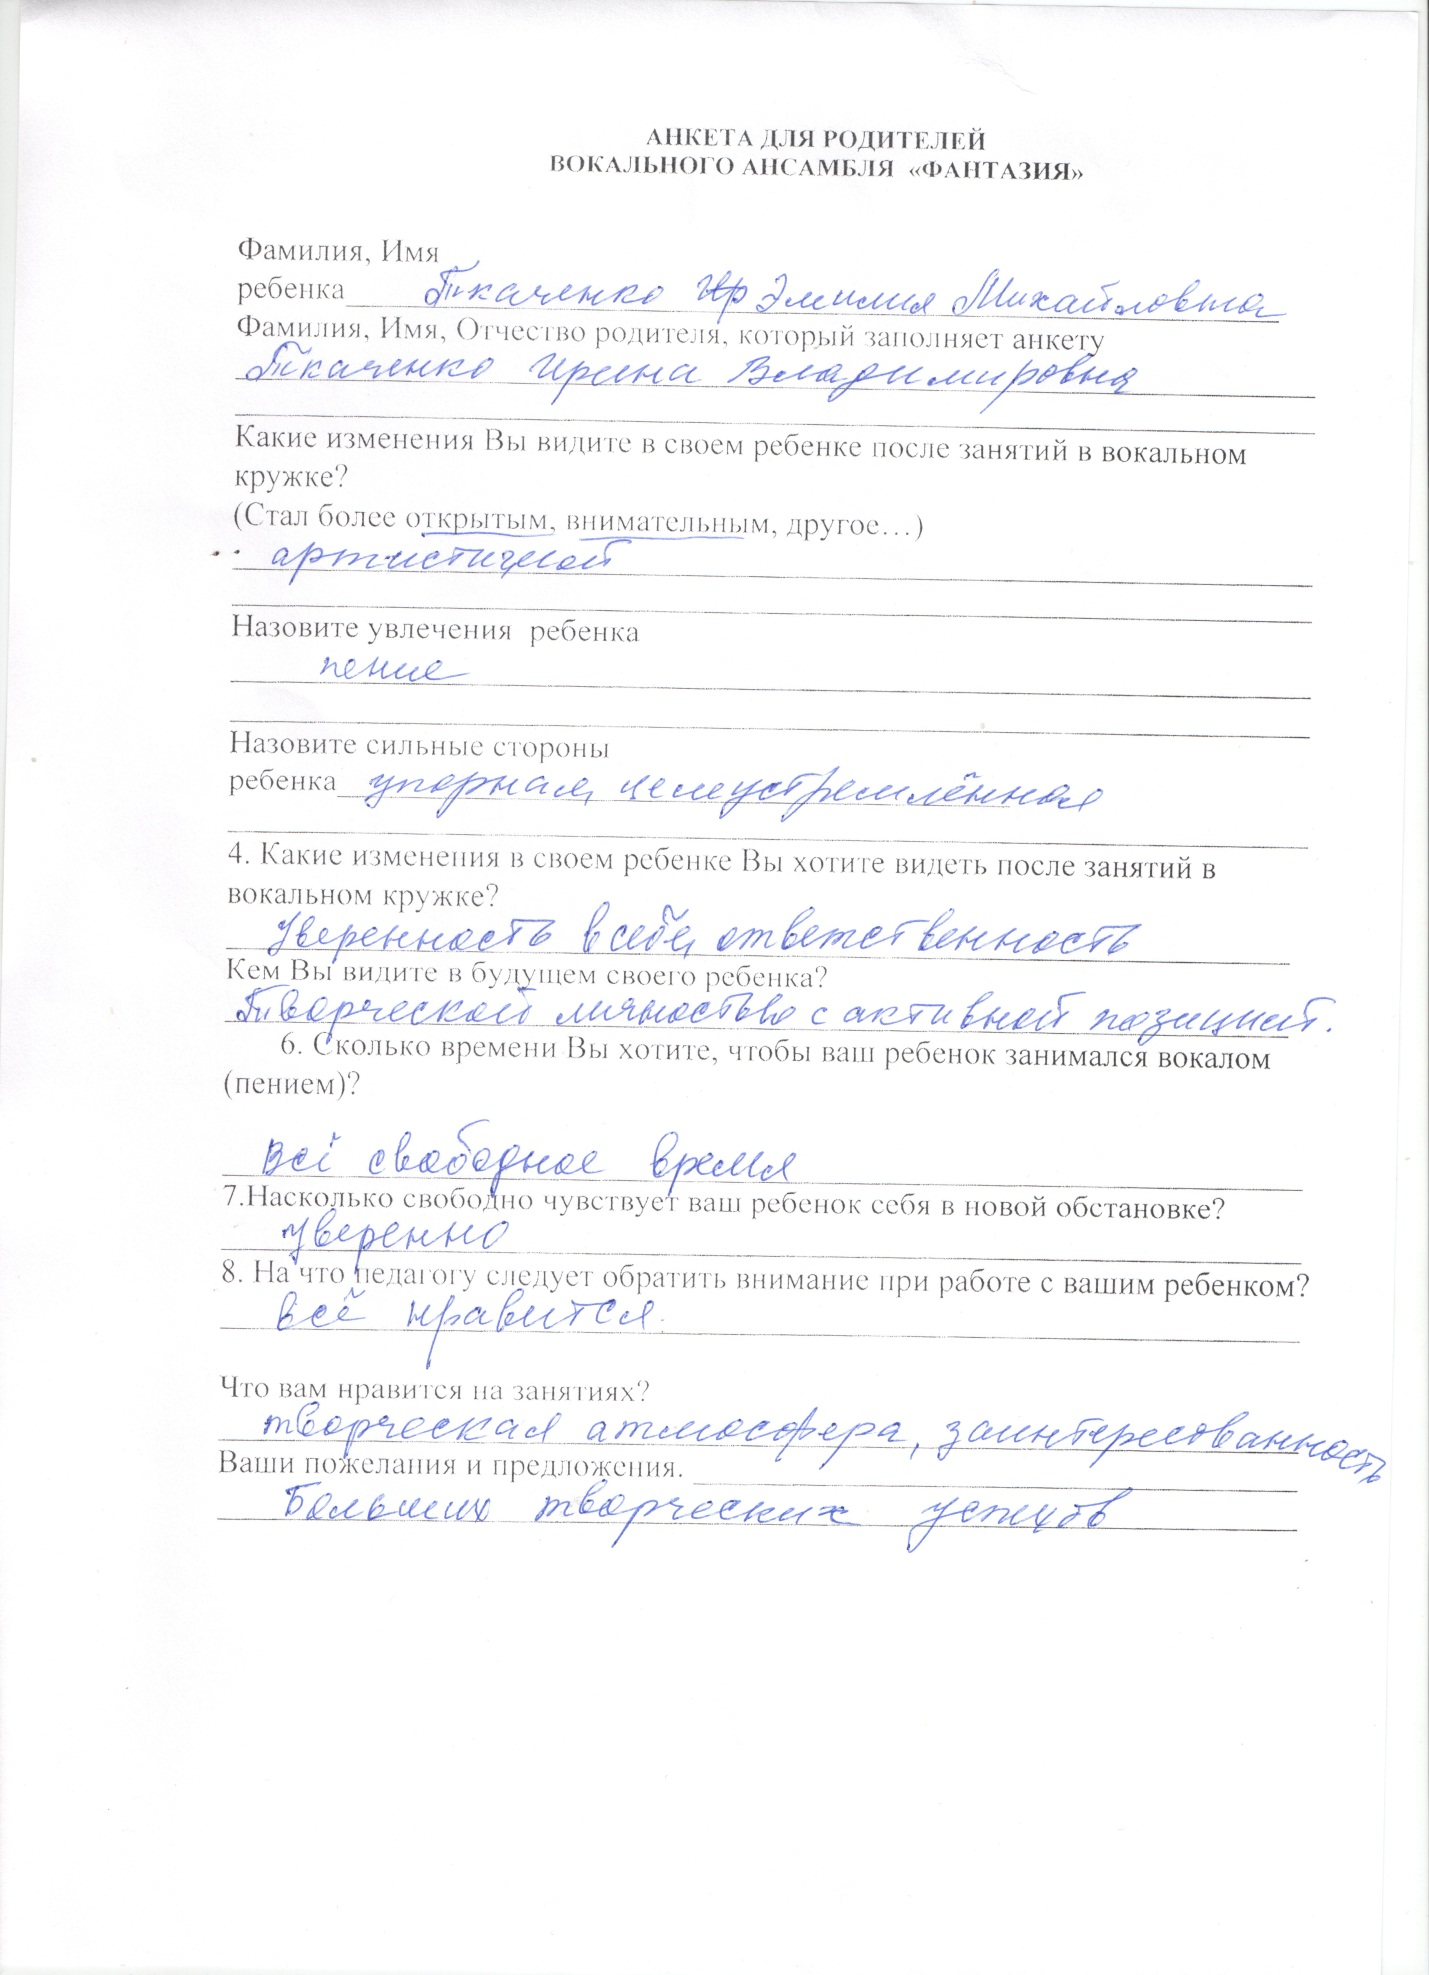 АНКЕТА ДЛЯ РОДИТЕЛЕЙ
ВОКАЛЬНОГО АНСАМБЛЯ «ФАНТАЗИЯ»
Фамилия, Имя
ребенка Ткаченко Эмилия Михайловна
Фамилия, Имя, Отчество родителя, который заполняет анкету
Ткаченко Ирина Владимировна
Какие изменения Вы видите в своем ребенке после занятий в вокальном
кружке?
(Стал более открытым, внимательным, другое…)
артистичной
Назовите увлечения ребенка
пение
Назовите сильные стороны
ребенка упорная, целеустремлённая
4. Какие изменения в своем ребенке Вы хотите видеть после занятий в
вокальном кружке?
Уверенность в себе, ответственность
Кем Вы видите в будущем своего ребенка?
Творческой личностью с активной позицией.
6. Сколько времени Вы хотите, чтобы ваш ребенок занимался вокалом
(пением)?
Всё свободное время
7.Насколько свободно чувствует ваш ребенок себя в новой обстановке?
уверенно
8. На что педагогу следует обратить внимание при работе с вашим ребенком?
всё нравится.
Что вам нравится на занятиях?
творческая атмосфера, заинтересованность
Ваши пожелания и предложения.
Больших творческих успехов